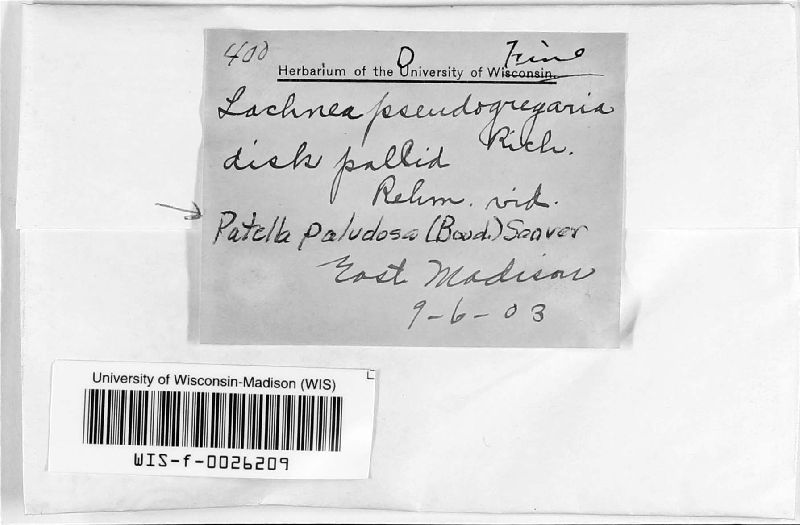 400
Fine
Herbarium of the University of Wisconsin.
Lachnea pseudogregaria
Rich.
disk pallid
Rehm. vid.
Patella paludosa (Boud.) Seaver
East Madison
9-6-03
University of Wisconsin-Madison (WIS)
WIS-f-0026209